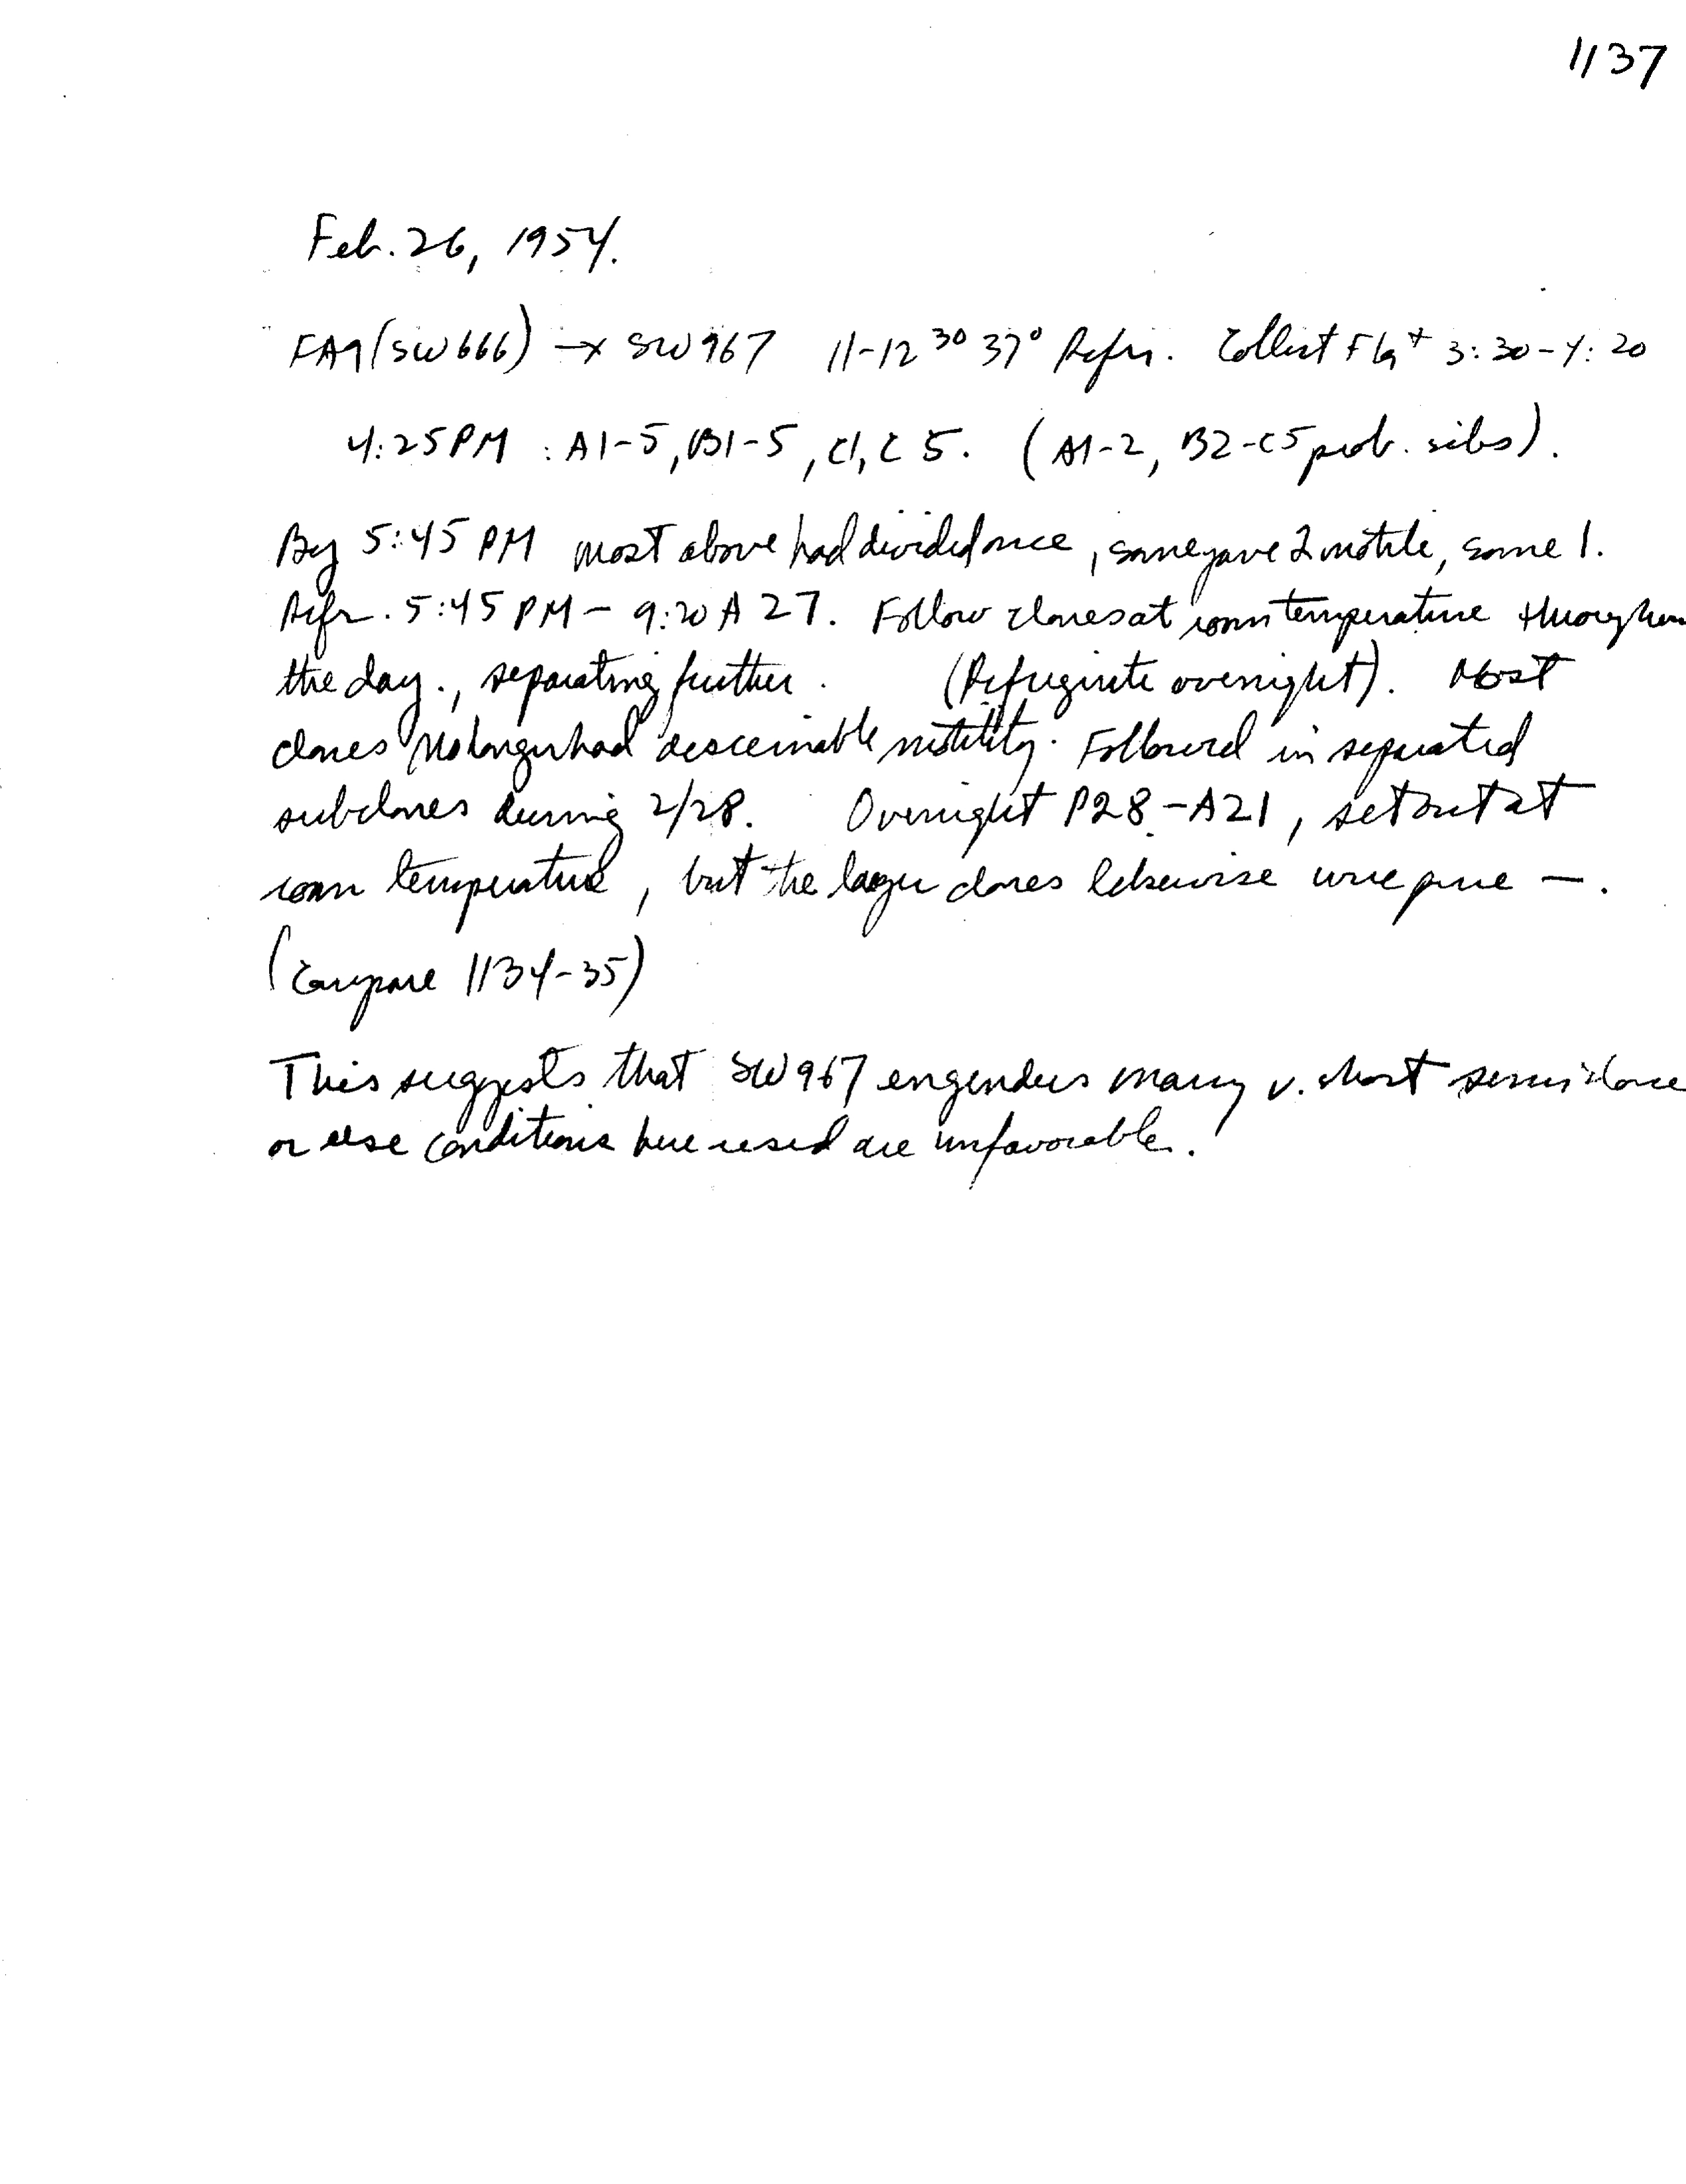 1137
Feb. 26, 1954.
FA9(SW666) —x SW967 11-12³⁰ 37° Refri. Collect Fla⁺ 3:30-4:20
4:25PM : A1-5, B1-5, C1, C5. (A1-2, B2-C5 prob. sibs).
By 5:45 PM most above had divided once, some gave 2 motile, some 1.
Refr. 5:45 PM – 9:20 A 27. Follow clones at room temperature
the day., separating further. (Refrigerate overnight). Most
clones no longer had discernable motility. Followed in separated
subclones during 2/28. Overnight P28-A21, set out at
room temperature, but the larger clones likewise were pure —.
(Compare 1134-35)
This suggests that SW967 engenders many v. short semiclone
or else conditions here used are unfavorable.